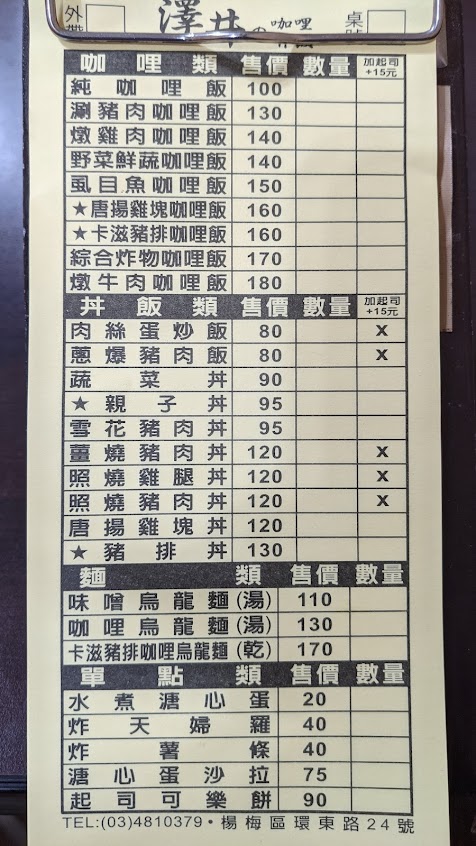 外帶 澤井の咖哩 桌號
咖哩類 售價 數量 加起司+15元
純咖哩飯 100
涮豬肉咖哩飯 130
燉雞肉咖哩飯 140
野菜鮮蔬咖哩飯 140
虱目魚咖哩飯 150
★唐揚雞塊咖哩飯 160
★卡滋豬排咖哩飯 160
綜合炸物咖哩飯 170
燉牛肉咖哩飯 180
丼飯類 售價 數量 加起司+15元
肉絲蛋炒飯 80 X
蔥爆豬肉飯 80 X
蔬菜丼 90
★親子丼 95
雪花豬肉丼 95
薑燒豬肉丼 120 X
照燒雞腿丼 120 X
照燒豬肉丼 120 X
唐揚雞塊丼 120
★豬排丼 130
麵類 售價 數量
味噌烏龍麵(湯) 110
咖哩烏龍麵(湯) 130
卡滋豬排咖哩烏龍麵(乾) 170
單點類 售價 數量
水煮溏心蛋 20
炸天婦羅 40
炸薯條 40
溏心蛋沙拉 75
起司可樂餅 90
TEL:(03)4810379•楊梅區環東路24號